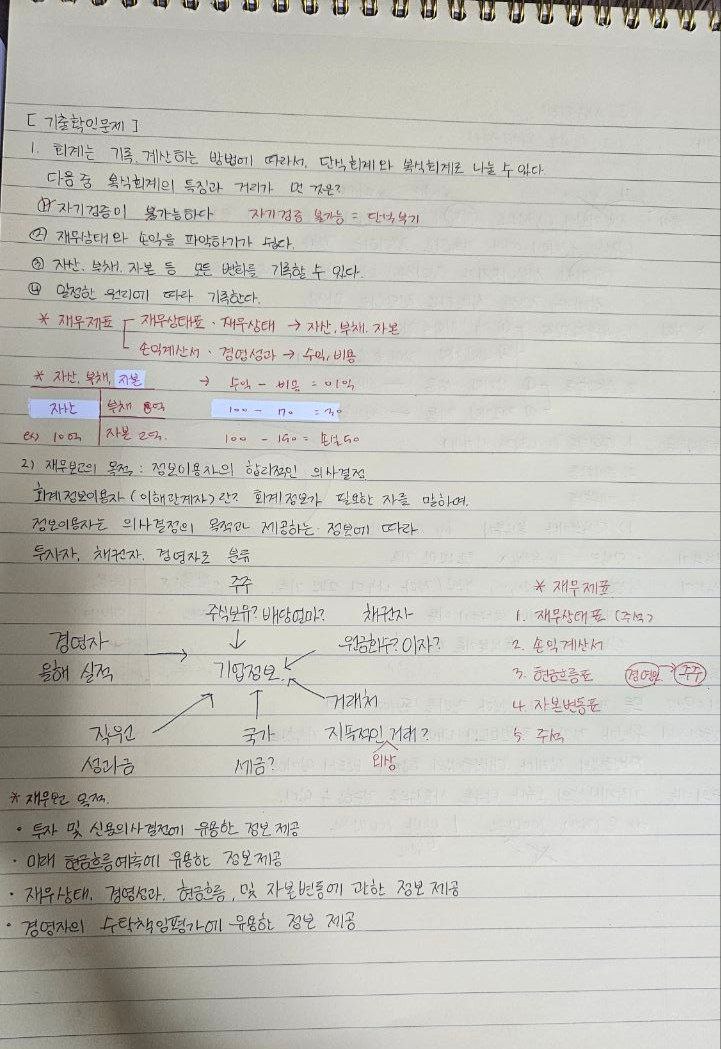 [ 기출확인문제 ]
1. 회계는 기록, 계산하는 방법에 따라서, 단식회계와 복식회계로 나눌 수 있다.
다음 중 복식회계의 특징과 거리가 먼 것은?
① 자기검증이 불가능하다 자기검증 불가능 = 단식부기
② 재무상태와 손익을 파악하기가 쉽다.
③ 자산, 부채, 자본 등 모든 변화를 기록할 수 있다.
④ 일정한 원리에 따라 기록한다.
* 재무제표 재무상태표 · 재무상태 → 자산, 부채, 자본
손익계산서 · 경영성과 → 수익, 비용
* 자산, 부채, 자본 → 수익 - 비용 = 이익
자산 부채 8억 100 - 70 = 30
ex) 10억 자본 2억. 100 - 150 = 손실50
2) 재무보고의 목적 : 정보이용자의 합리적인 의사결정
회계정보이용자 (이해관계자)란? 회계정보가 필요한 자를 말하며,
정보이용자는 의사결정의 목적과 제공하는 정보에 따라
투자자, 채권자, 경영자로 분류
주주 * 재무제표
주식보유? 배당얼마? 채권자 1. 재무상태표 (주석)
경영자 원금회수? 이자? 2. 손익계산서
올해 실적 기업정보 3. 현금흐름표 경영인 → 주주
거래처 4. 자본변동표
직원 국가 지속적인 거래? 5. 주석
성과금 세금? 외상
* 재무보고 목적.
· 투자 및 신용의사결정에 유용한 정보 제공
· 미래 현금흐름예측에 유용한 정보제공
· 재무상태, 경영성과, 현금흐름, 및 자본변동에 관한 정보 제공
· 경영자의 수탁책임평가에 유용한 정보 제공